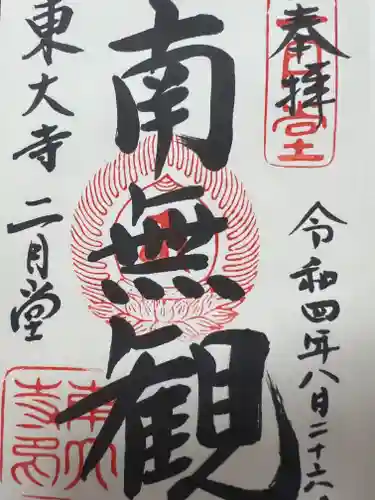 奉拝
令和四年八月二十六
南無観
東大寺 二月堂